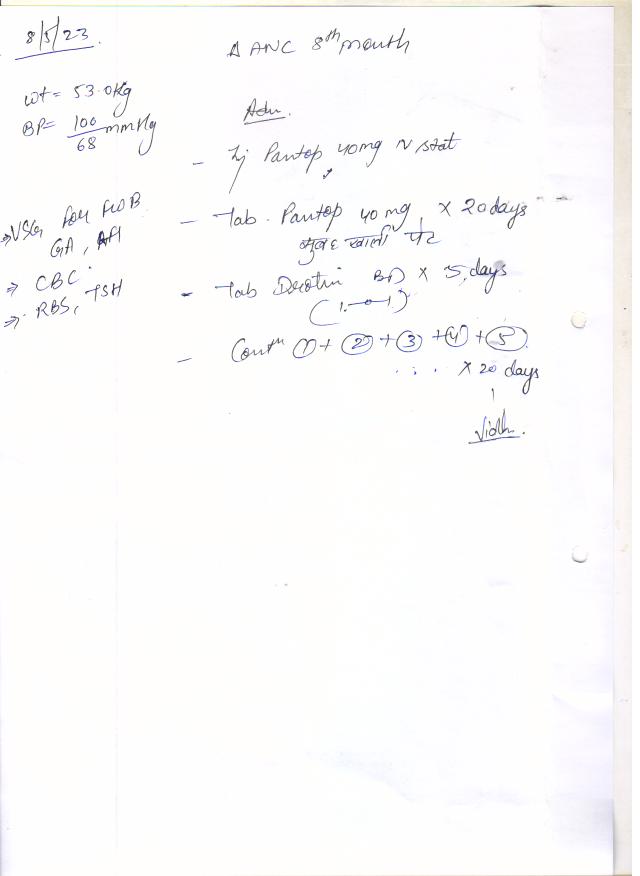 8/5/23.
Δ ANC 8th month
wt = 53.0kg
BP = 100/68 mmHg
Adv.
- Inj Pantop 40mg IV stat
- Tab. Pantop 40 mg × 20 days
सुबह खाली पेट
⇒ USG for FWB
GA, AFI
⇒ CBC
⇒ RBS, TSH
- Tab Drotin BD × 5 days
(1-0-1)
- Contn ① + ② + ③ + ④ + ⑤
× 20 days